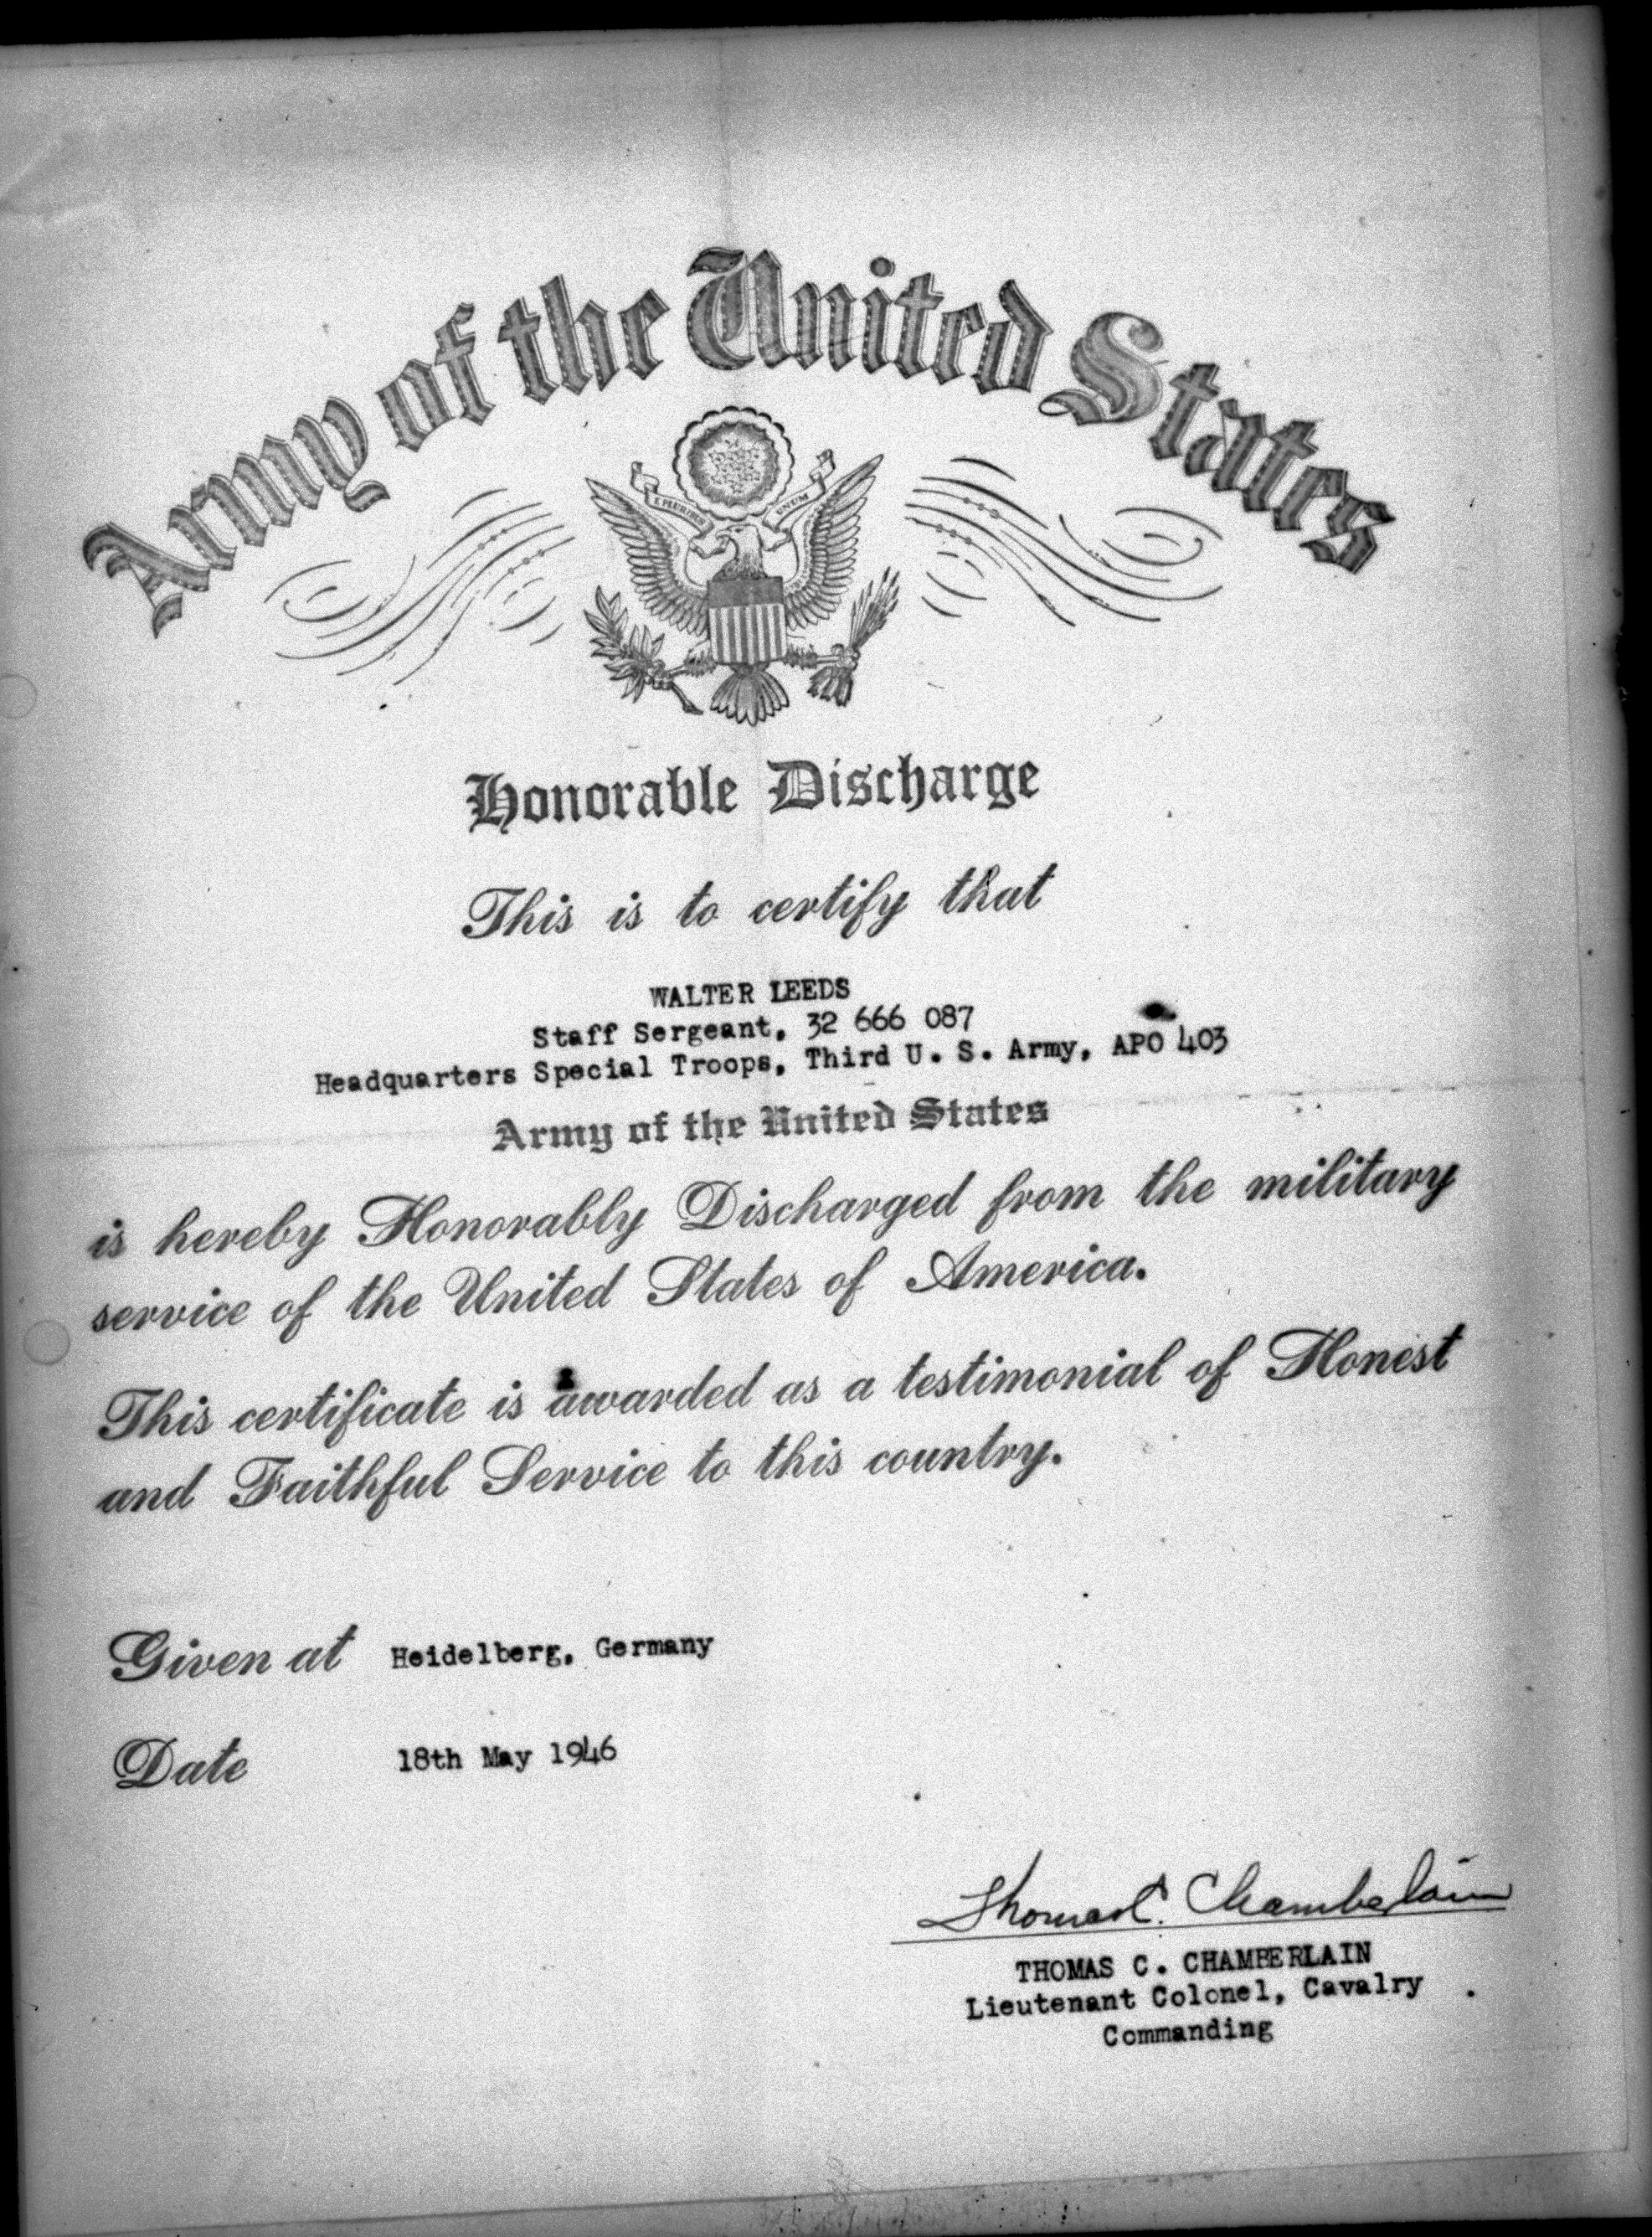 Army of the United States
E PLURIBUS UNUM
Honorable Discharge
This is to certify that
WALTER LEEDS
Staff Sergeant, 32 666 087
Headquarters Special Troops, Third U. S. Army, APO 403
Army of the United States
is hereby Honorably Discharged from the military
service of the United States of America.
This certificate is awarded as a testimonial of Honest
and Faithful Service to this country.
Given at Heidelberg, Germany
Date 18th May 1946
Thomas C. Chamberlain
THOMAS C. CHAMBERLAIN
Lieutenant Colonel, Cavalry
Commanding